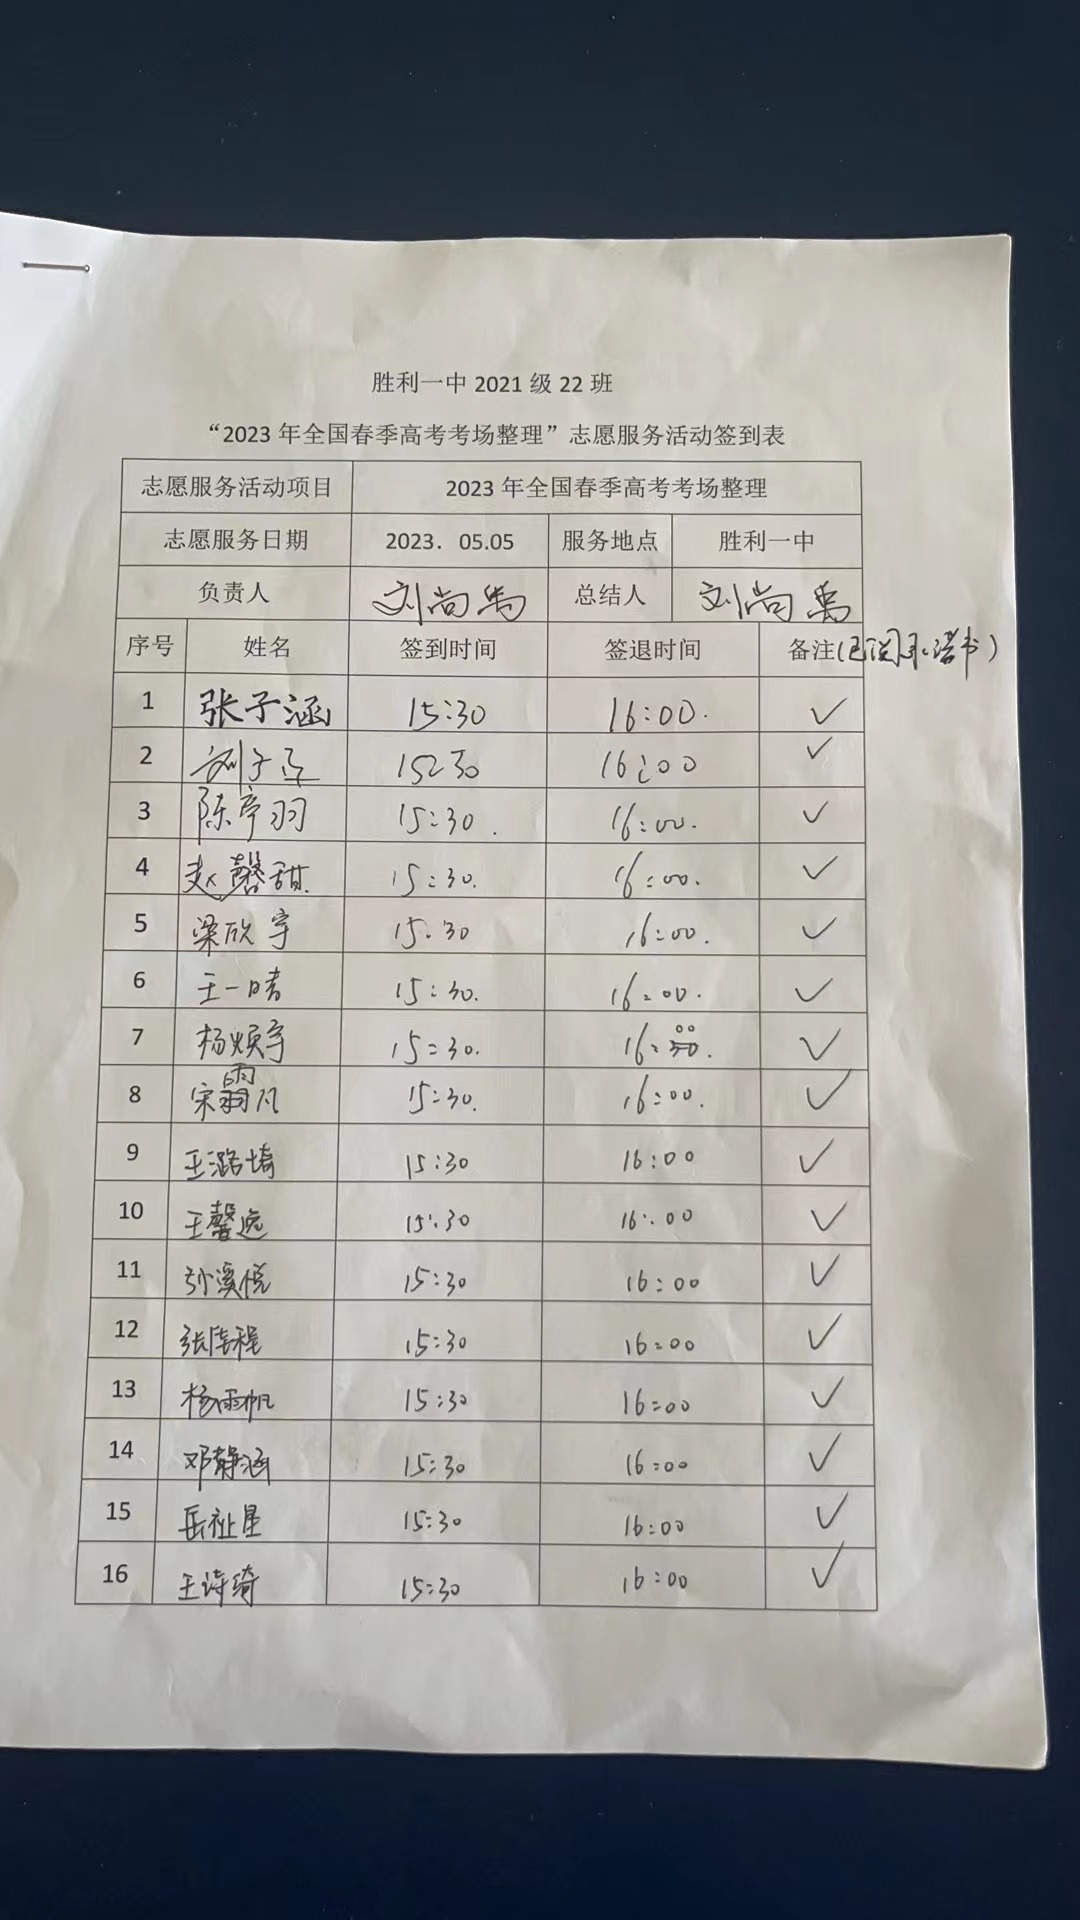 胜利一中 2021 级 22 班
“2023 年全国春季高考考场整理”志愿服务活动签到表
志愿服务活动项目 2023 年全国春季高考考场整理
志愿服务日期 2023．05.05 服务地点 胜利一中
负责人 刘尚禹 总结人 刘尚禹
序号 姓名 签到时间 签退时间 备注(已阅承诺书)
1 张子涵 15:30 16:00. ✓
2 刘子 15:30 16:00 ✓
3 陈亭羽 15:30. 16:00. ✓
4 赵馨甜 15:30. 16:00. ✓
5 梁欣宇 15:30 16:00. ✓
6 王一晴 15:30. 16:00. ✓
7 杨焕宇 15:30. 16:00. ✓
8 宋霜凡 15:30. 16:00. ✓
9 王潞埼 15:30 16:00 ✓
10 王馨逸 15:30 16:00 ✓
11 孙溪悦 15:30 16:00 ✓
12 张 程 15:30 16:00 ✓
13 杨雨帆 15:30 16:00 ✓
14 邓静涵 15:30 16:00 ✓
15 岳祉星 15:30 16:00 ✓
16 王诗琦 15:30 16:00 ✓